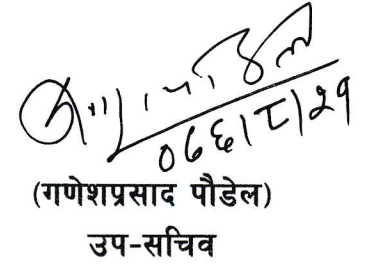 ०६६।८।२१
(गणेशप्रसाद पौडेल)
उप-सचिव